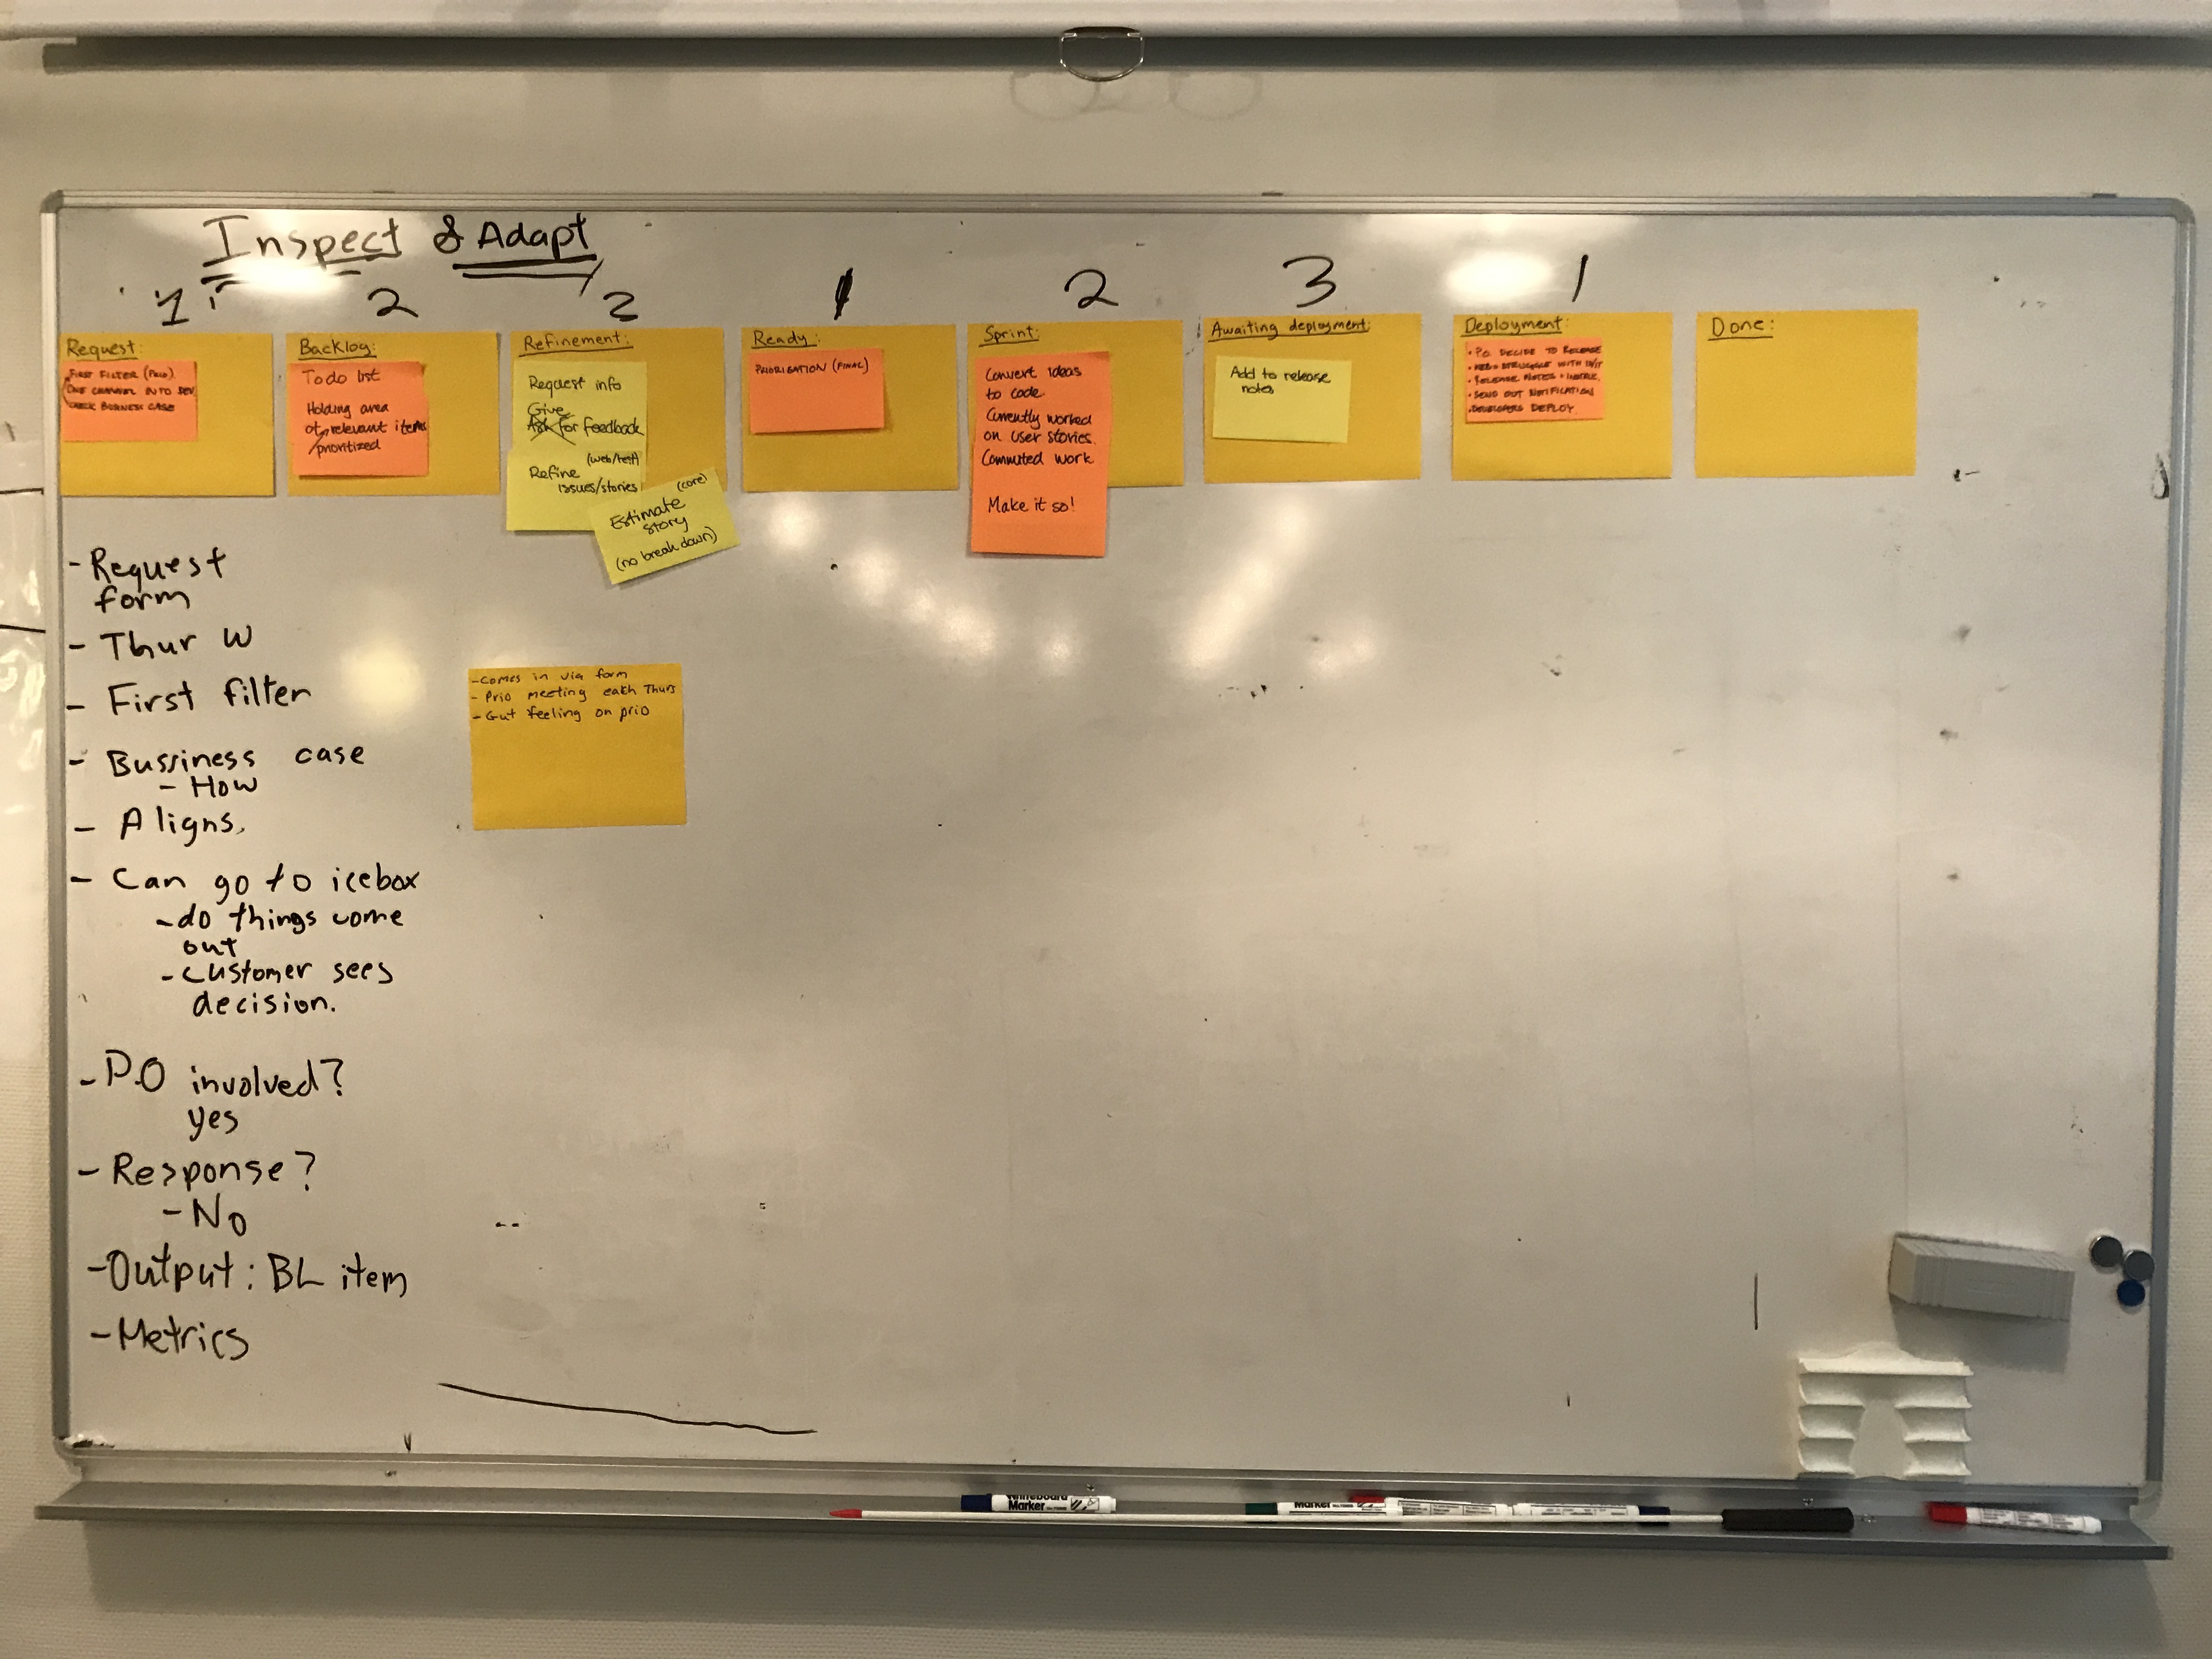 Inspect & Adapt
1
2
2
1
2
3
1
Request:
FIRST FILTER (PRIO)
ONE CHANNEL INTO DEV
CHECK BUSINESS CASE
Backlog:
Todo list
Holding area
of relevant items
prioritized
Refinement:
Request info
Give
Ask for feedback
(web/test)
Refine
issues/stories
(core)
Estimate
story
(no break down)
Ready:
PRIORISATION (FINAL)
Sprint:
Convert ideas
to code
Currently worked
on user stories.
Commited work
Make it so!
Awaiting deployment:
Add to release
notes
Deployment:
• P.O. DECIDE TO RELEASE
STRUGGLE WITH
• RELEASE NOTES +
• SEND OUT NOTIFICATION
• DEVELOPERS DEPLOY
Done:
- Request
form
- Thur W
- First filter
- Bussiness case
- How
- Aligns.
- Can go to icebox
- do things come
out
- Customer sees
decision.
- P.O involved?
yes
- Response?
- No
- Output: BL item
- Metrics
- Comes in via form
- Prio meeting each Thurs
- Gut feeling on prio
Whiteboard
Marker
Marker